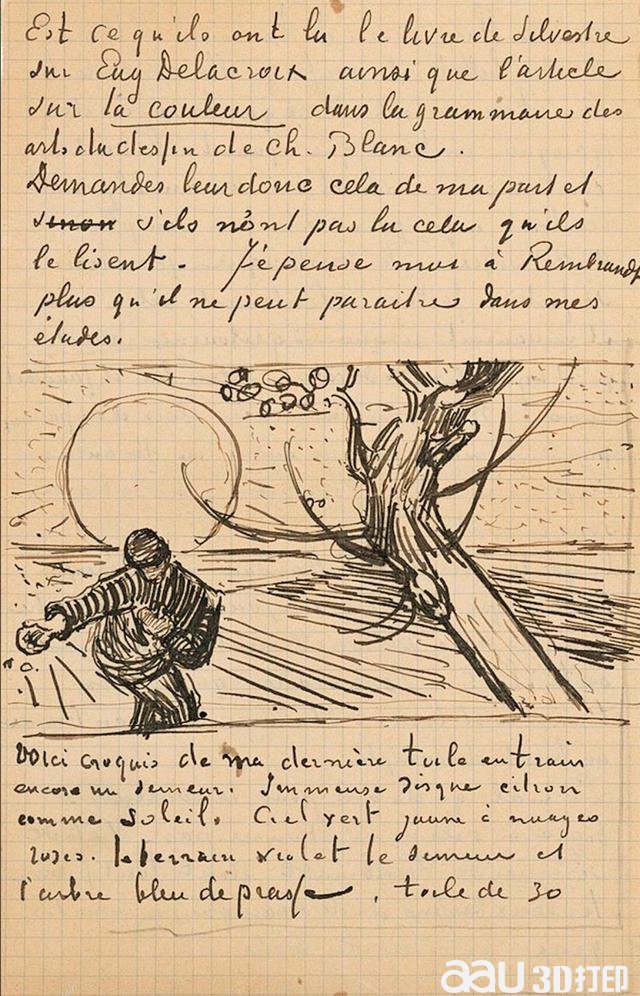 Est ce qu'ils ont lu le livre de Silvestre
sur Eug Delacroix ainsi que l'article
sur la couleur dans la grammaire des
arts du dessin de Ch. Blanc.
Demandes leur donc cela de ma part et
sinon s'ils n'ont pas lu cela qu'ils
le lisent. J'epense moi à Rembrandt
plus qu'il ne peut paraitre dans mes
études.
Voici croquis de ma dernière toile en train
encore un semeur. Immense disque citron
comme soleil. Ciel vert jaune à nuages
roses. le terrain violet le semeur et
l'arbre bleu de prusse. toile de 30
aau 3D打印